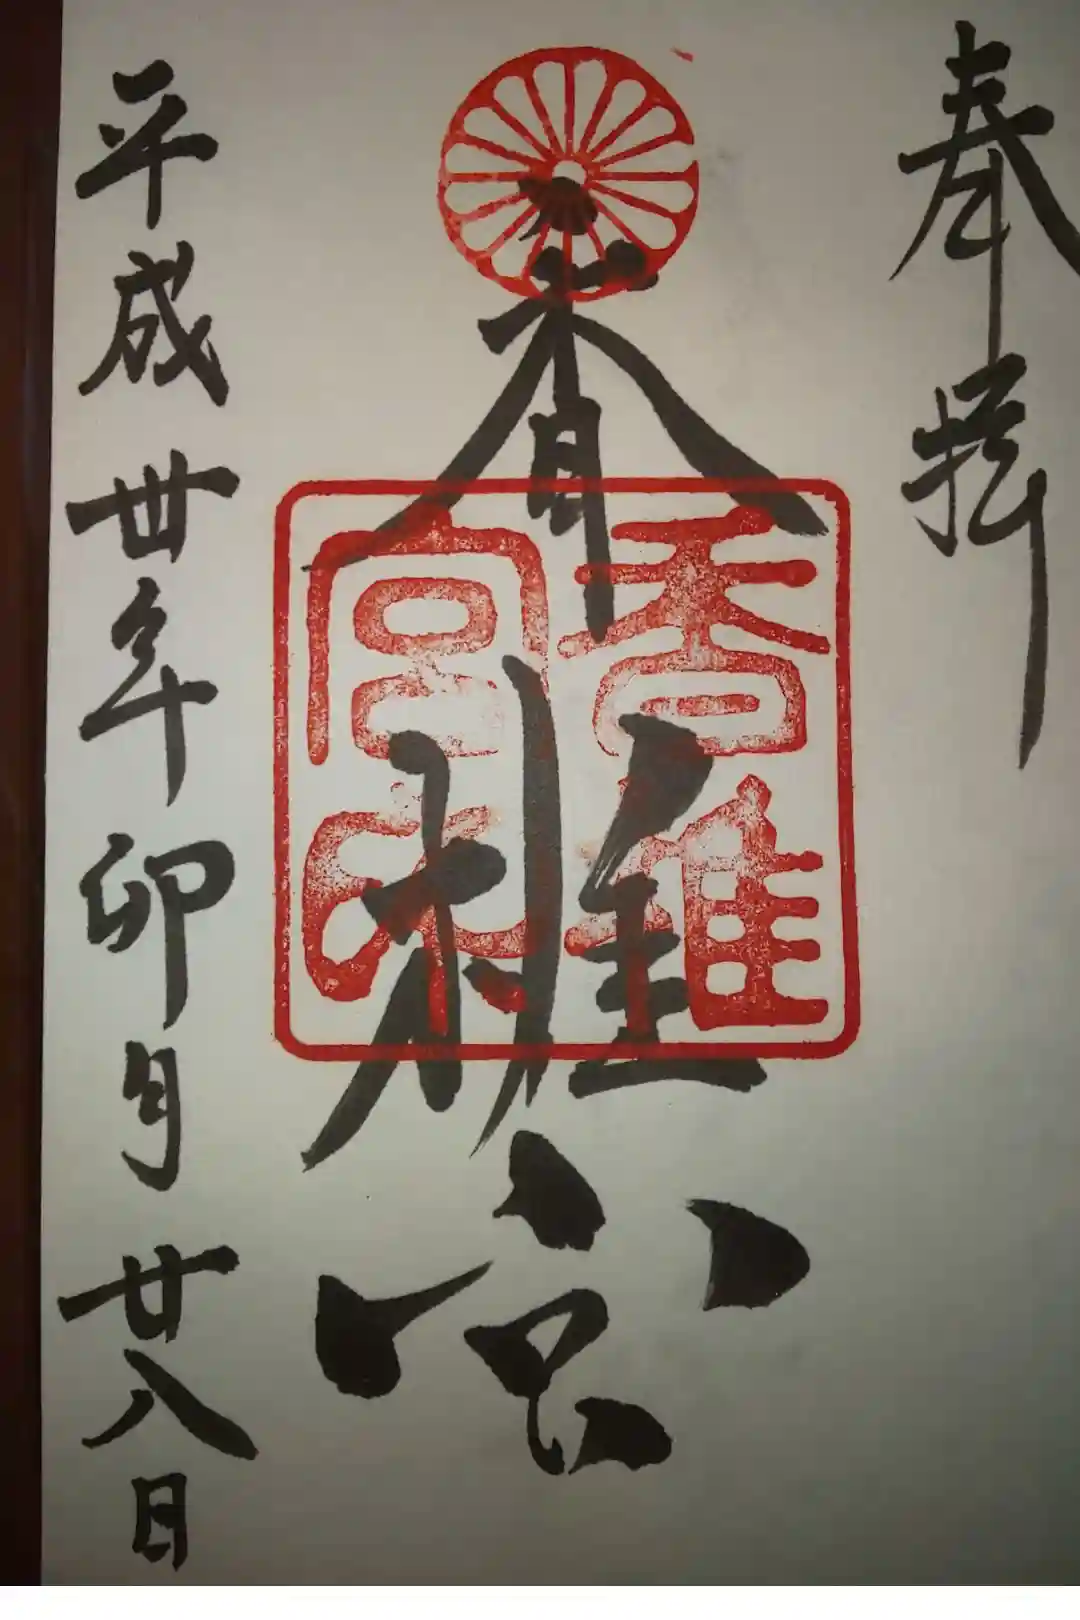 奉拝
香椎宮
香椎
宮印
平成丗年卯月廿八日